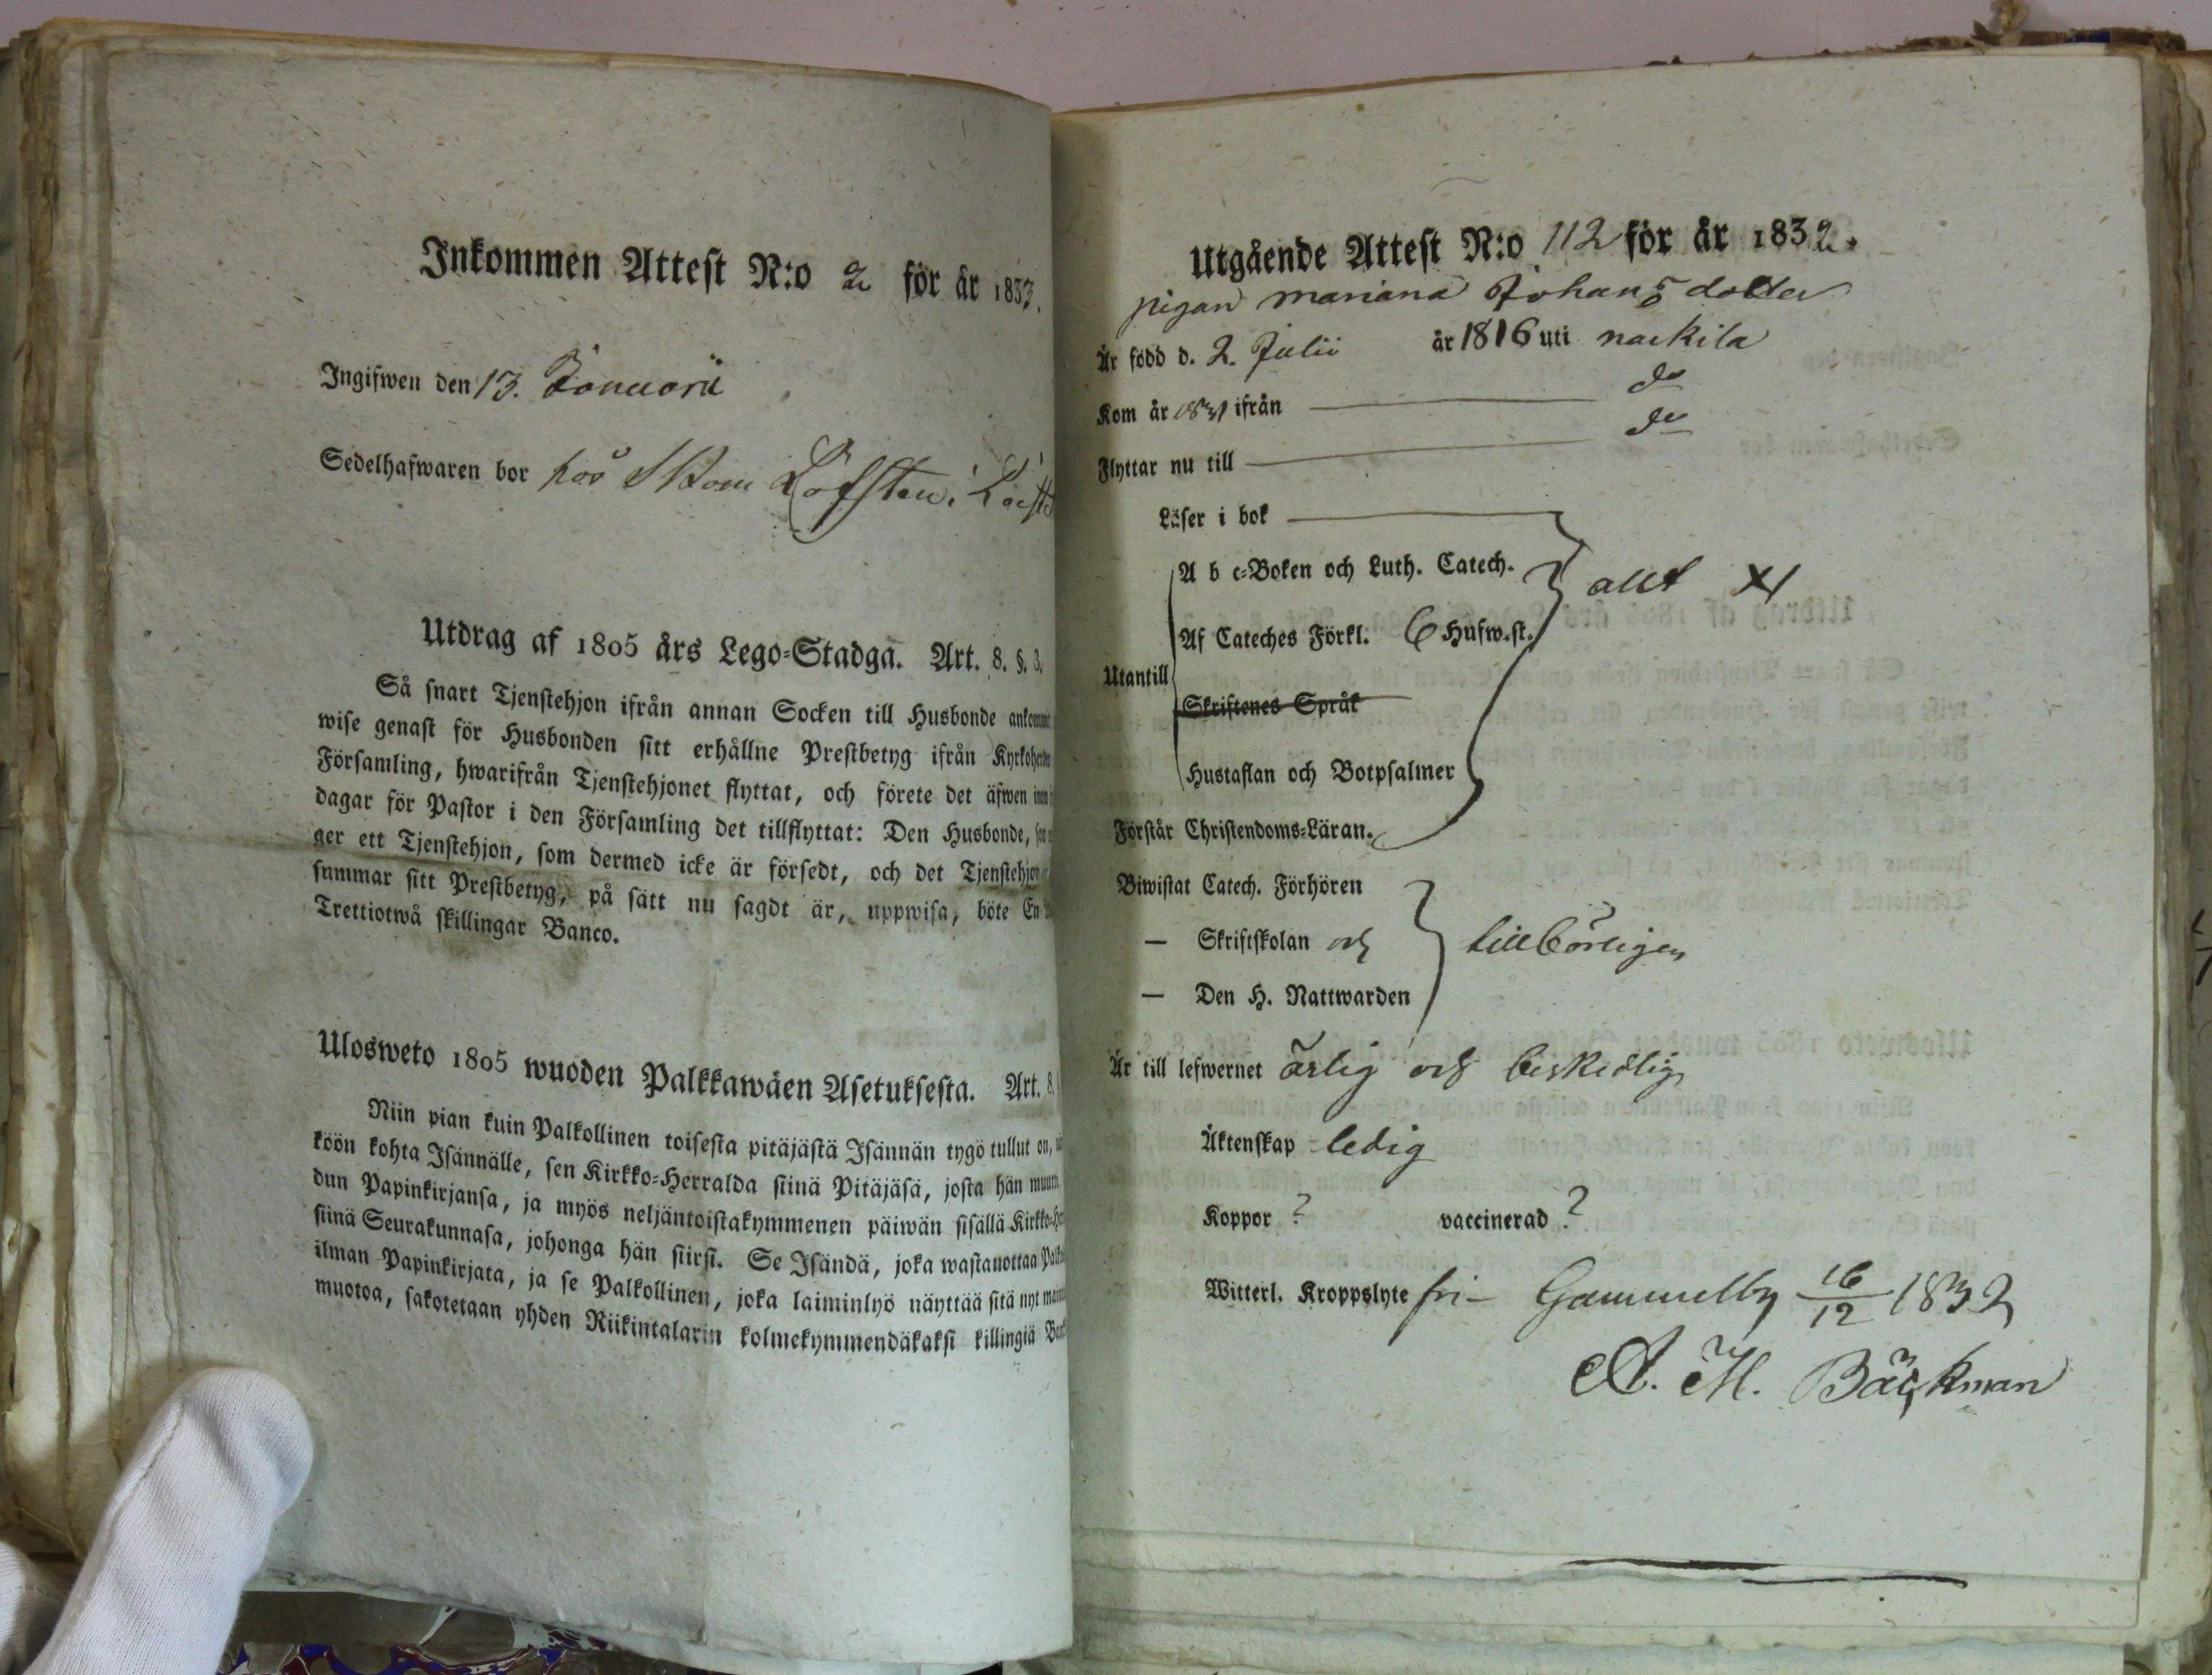 Inkommen Attest N:o 2 för år 1833.
Ingifwen den 13. Januarii
Sedelhafwaren bor hos Skom Löfsten i
Utdrag af 1805 års Lego-Stadga. Art. 8. §. 3.
Så snart Tjenstehjon ifrån annan Socken till Husbonde ankommit
wise genast för Husbonden sitt erhållne Prestbetyg ifrån
Församling, hwarifrån Tjenstehjonet flyttat, och förete det äfwen
dagar för Pastor i den Församling det tillflyttat: Den Husbonde,
ger ett Tjenstehjon, som dermed icke är försedt, och det Tjenstehjon
summar sitt Prestbetyg, på sätt nu sagdt är, uppwisa, böte En
Trettiotwå skillingar Banco.
Ulosweto 1805 wuoden Palkkawäen Asetuksesta. Art. 8.
Niin pian kuin Palkollinen toisesta pitäjästä Isännän tygö tullut on,
köön kohta Isännälle, sen Kirkko-Herralda siinä Pitäjäsä, josta hän
dun Papinkirjansa, ja myös neljäntoistakymmenen päiwän sisällä
siinä Seurakunnasa, johonga hän siirsi. Se Isändä, joka wastanottaa
ilman Papinkirjata, ja se Palkollinen, joka laiminlyö näyttää sitä nyt
muotoa, sakotetaan yhden Riikintalarin kolmekymmendäkaksi killingiä
Utgående Attest N:o 112 för år 1832.
pigan mariana Johansdotter
Är född d. 2. Julii år 1816 uti nackila
Kom år 1831 ifrån do
Flyttar nu till do
Läser i bok
A b c-Boken och Luth. Catech. allt X
Af Cateches Förkl. 6 Hufw.st.
Utantill
Skriftenes Språk
Hustaflan och Botpsalmer
Förstår Christendoms-Läran.
Biwistat Catech. Förhören
— Skriftskolan och tillbörligen
— Den H. Nattwarden
Är till lefwernet ärlig och beskedlig
Äktenskap ledig
Koppor ? vaccinerad ?
Witterl. Kroppslyte fri – Gammelby 16/12 1832
A. M. Bäckman